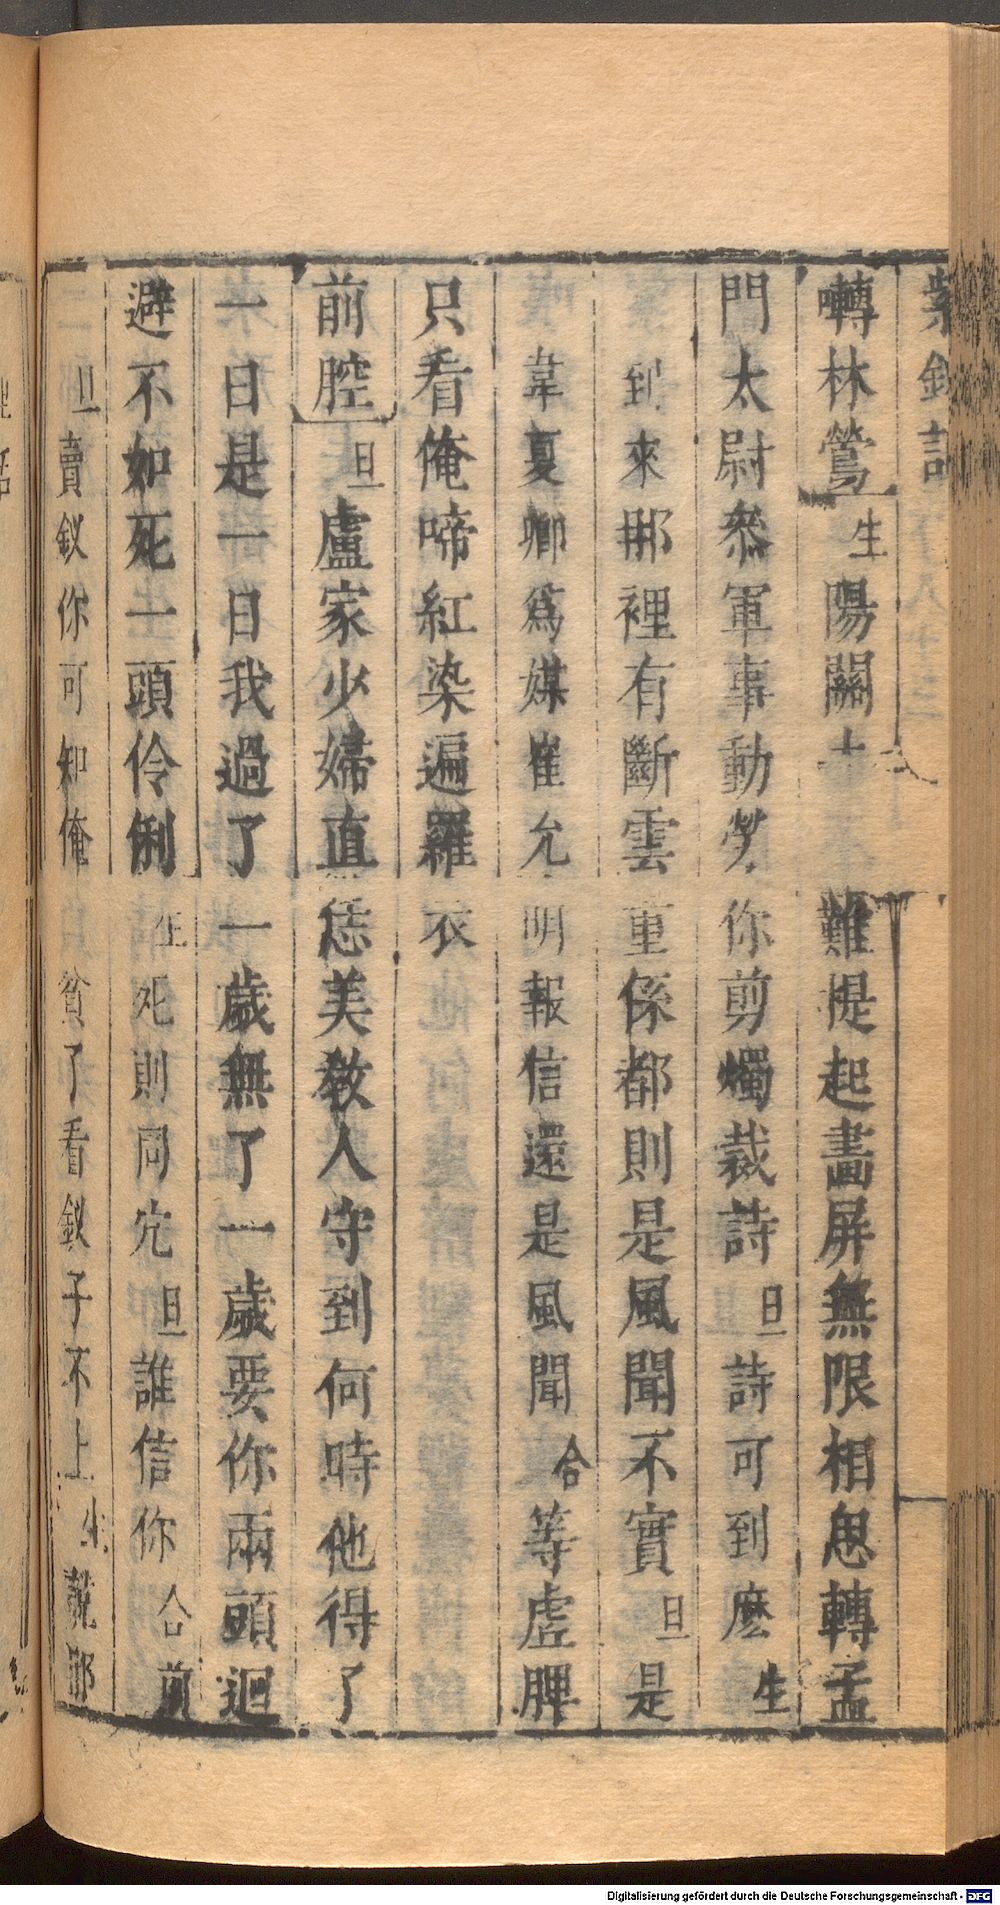 紫釵記
囀林鶯 生 陽關 難提起畫屏無限相思轉孟
門太尉叅軍事動勞你剪燭裁詩 旦 詩可到麽 生
到來那裡有斷雲重係都則是風聞不實 旦 是
韋夏卿爲媒崔允明報信還是風聞 合 等虛脾
只看俺啼紅染遍羅衣
前腔 旦 盧家少婦直恁美教人守到何時他得了
一日是一日我過了一歲無了一歲要你兩頭迴
避不如死一頭伶俐 生 死則同穴 旦 誰信你 合 前
旦 賣釵你可知俺貧了看釵子不上 生
Digitalisierung gefördert durch die Deutsche Forschungsgemeinschaft - DFG